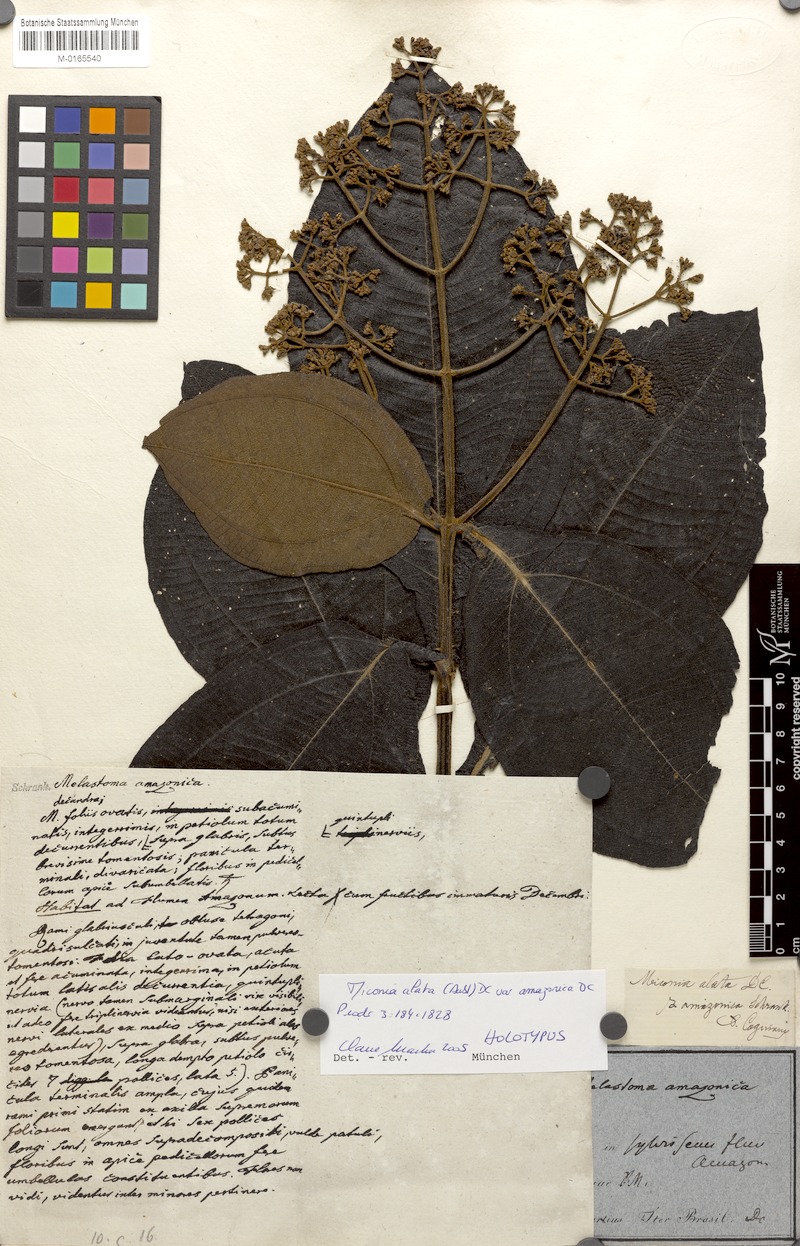 Botanische Staatssammlung München
M-0165540
BOTANISCHE
STAATSSAMMLUNG
MÜNCHEN
copyright reserved
10
9
8
7
6
5
4
3
2
1
0
cm
Schrank. Melastoma amazonica.
decandra;
M. foliis ovatis, subacumi-
natis, integerrimis, in petiolum totum
decurrentibus, quintupli
nerviis,
supra glabris, subtus
brevissime tomentosis; panicula ter-
minali, divaricata; floribus in pedicel-
lorum apice subumbellatis.
Habitat ad flumen Amazonum. Lecta cum fructibus immaturis Decembri.
Rami glabriusculi, obtuse tetragoni,
quadrisulcati, in juventute tamen pulvereo-
tomentosi. lato-ovata, acuta
et fere acuminata, integerrima, in petiolum
totum latis alis decurrentia, quintupli-
nervia (nervo tamen submarginali vix visibili,
et adeo fere triplinervia videntur, nisi anteriores
nervi laterales ex medio supra petioli alas
egrederentur), supra glabra, subtus pulve-
reo tomentosa, longa dempto petiolo
7 pollices, lata 5. Pani-
cula terminalis ampla, cujus
rami primi statim ex axilla supremorum
foliorum et hi sex pollices
longi sunt, omnes supradecompositi, valde patuli,
floribus in apice pedicellorum fere
umbellulas constituentibus. Flores non
vidi, videntur inter minores pertinere.
10. c 16.
Miconia alata (Aubl) DC var amazonica DC
Prodr 3:184.1828
HOLOTYPUS
2005
Det. - rev. München
Miconia alata DC
β amazonica Schrank.
D. Cogniaux
Melastoma amazonica
in sylvis secus fluv
Amazon
Iter Brasil.